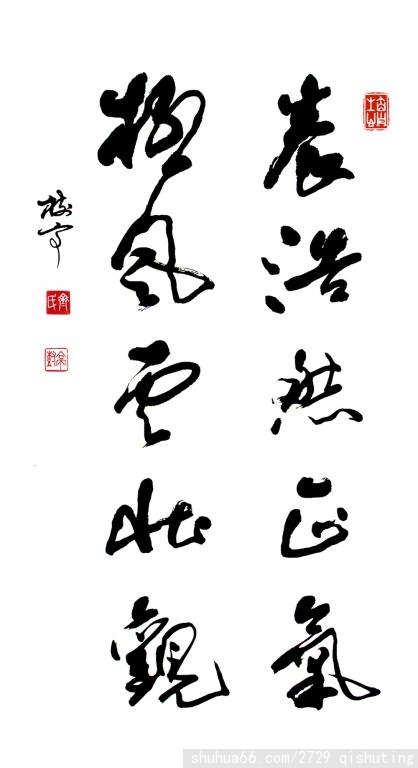 養浩然正氣
極風雲壯觀
shuhua66.com/2729 qishuting